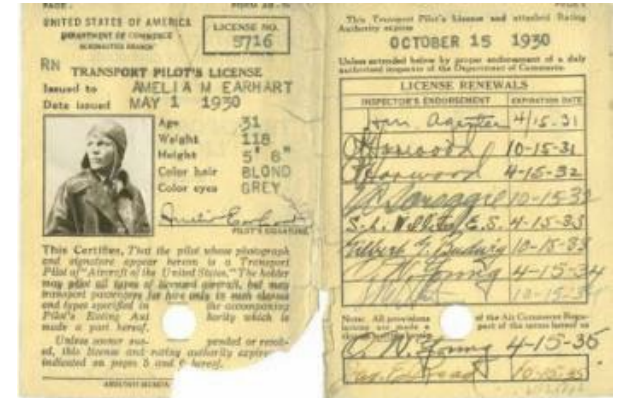 PAGE
UNITED STATES OF AMERICA
DEPARTMENT OF COMMERCE
AERONAUTICS BRANCH
LICENSE NO.
5716
RN TRANSPORT PILOT'S LICENSE
Issued to AMELIA M EARHART
Date issued MAY 1 1930
Age 31
Weight 118
Height 5' 8"
Color hair BLOND
Color eyes GREY
Amelia Earhart
PILOT'S SIGNATURE
This Certifies, That the pilot whose photograph
and signature appear hereon is a Transport
Pilot of "Aircraft of the United States." The holder
may pilot all types of licensed aircraft, but may
transport passengers for hire only in such classes
and types specified in the accompanying
Pilot's Rating Aut hority which is
made a part hereof.
Unless sooner sus pended or revok-
ed, this license and rating authority expires
indicated on pages 5 and 6 hereof.
This Transport Pilot's License and attached Rating
Authority expire
OCTOBER 15 1930
Unless extended below by proper endorsement of a duly
authorized inspector of the Department of Commerce.
LICENSE RENEWALS
INSPECTOR'S ENDORSEMENT EXPIRATION DATE
4/15-31
Harwood 10-15-31
Harwood 4-15-32
10-15-32
E.S. 4-15-33
Gilbert G. Budwig 10-15-33
Young 4-15-34
10-15-34
Note: All provisions of the Air Commerce Regu-
lations are made a part of the terms hereof as
O. W. Young 4-15-35
10-15-35